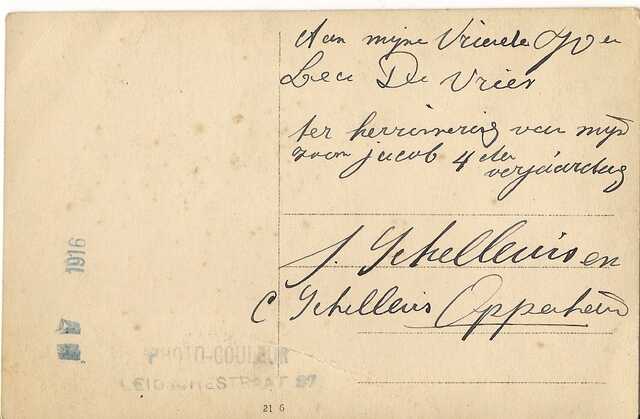 Aan mijne Vriende Op en
Leen De Vries
ter herrinnering van mijn
zoon jacob 4 den
verjaardag
J. Schellevis en
C Schellevis Oppenheim
1916
PHOTO-COULEUR
LEIDSCHESTRAAT 27
21 6